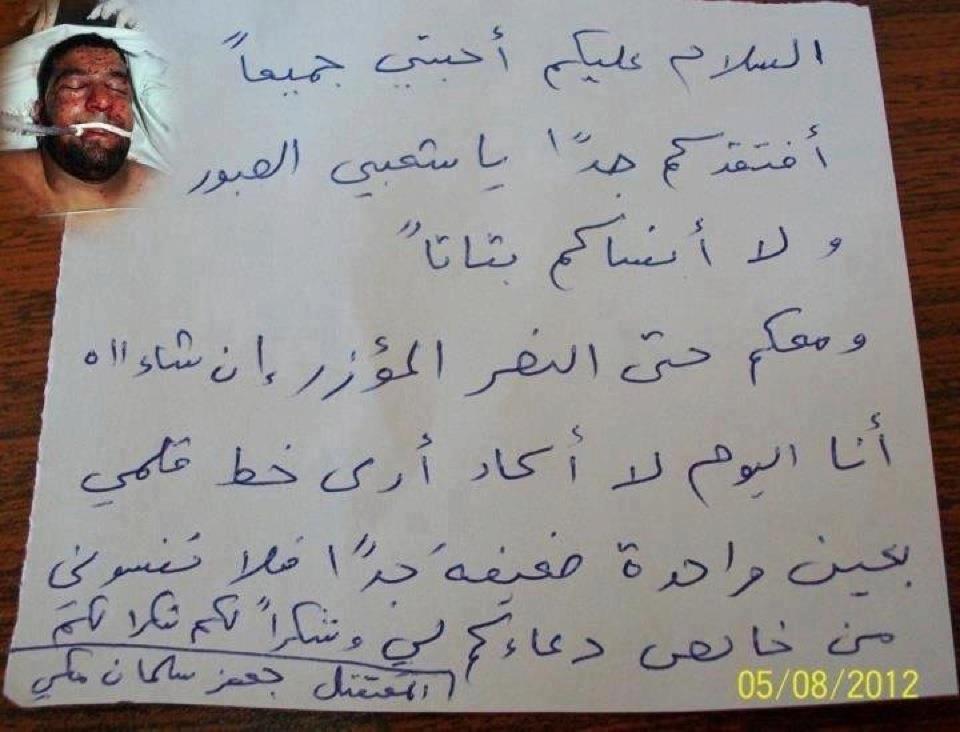 السلام عليكم أحبتي جميعاً
أفتقدكم جداً يا شعبي الصبور
ولا أنساكم بتاتاً
ومعكم حتى النصر المؤزر إن شاء الله
أنا اليوم لا أكاد أرى خط قلمي
بعين واحدة ضعيفة جداً فلا تنسوني
من خالص دعاءكم لي وشكراً لكم شكرا لكم
المعتقل جعفر سلمان مكي
05/08/2012